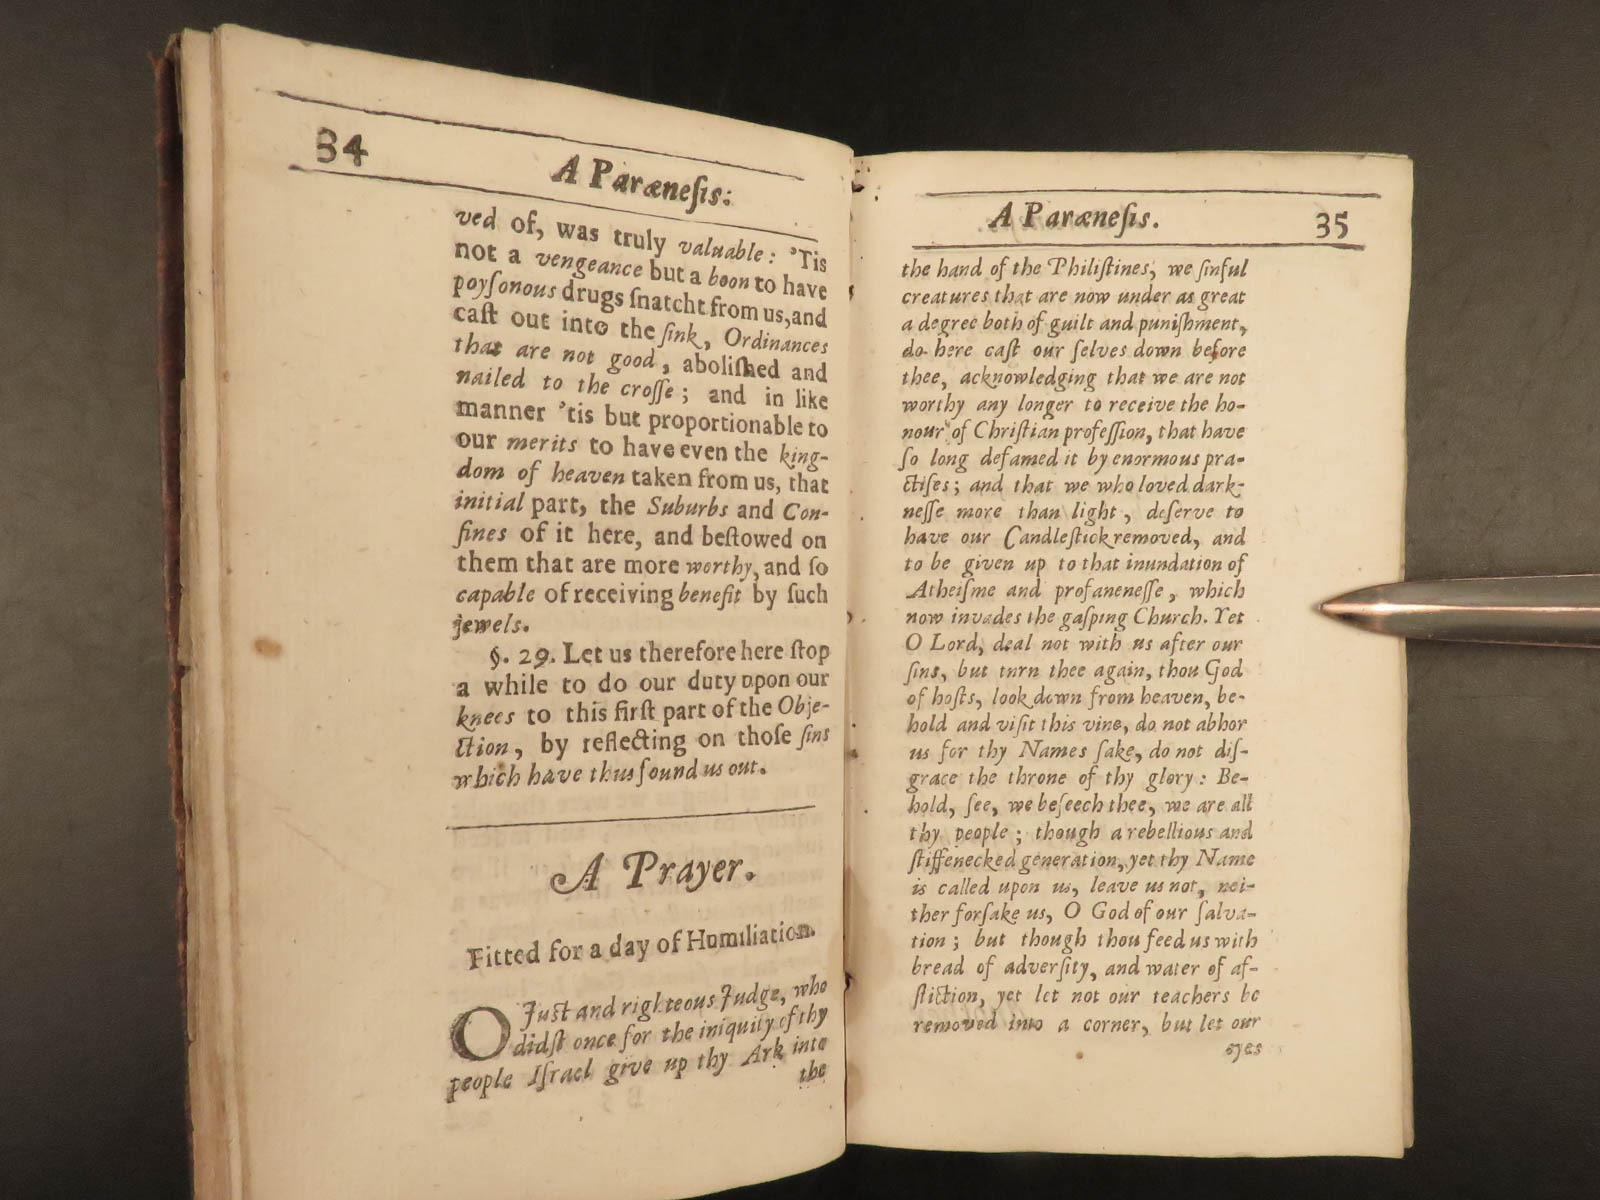 34
A Parænesis:
ved of, was truly valuable: 'Tis
not a vengeance but a boon to have
poyſonous drugs ſnatcht from us,and
caſt out into the ſink, Ordinances
that are not good, aboliſhed and
nailed to the croſſe; and in like
manner 'tis but proportionable to
our merits to have even the king-
dom of heaven taken from us, that
initial part, the Suburbs and Con-
fines of it here, and beſtowed on
them that are more worthy, and ſo
capable of receiving benefit by ſuch
jewels.
§. 29. Let us therefore here ſtop
a while to do our duty upon our
knees to this firſt part of the Obje-
ction, by reflecting on thoſe ſins
which have thus found us out.
A Prayer.
Fitted for a day of Humiliation.
O Juſt and righteous Judge, who
didſt once for the iniquity of thy
people Iſrael give up thy Ark into
the
A Parænesis.
35
the hand of the Philiſtines, we ſinful
creatures that are now under as great
a degree both of guilt and puniſhment,
do here caſt our ſelves down before
thee, acknowledging that we are not
worthy any longer to receive the ho-
nour of Chriſtian profeſſion, that have
ſo long defamed it by enormous pra-
ctiſes; and that we who loved dark-
neſſe more than light, deſerve to
have our Candleſtick removed, and
to be given up to that inundation of
Atheiſme and profaneneſſe, which
now invades the gaſping Church. Yet
O Lord, deal not with us after our
ſins, but turn thee again, thou God
of hoſts, look down from heaven, be-
hold and viſit this vine, do not abhor
us for thy Names ſake, do not diſ-
grace the throne of thy glory: Be-
hold, ſee, we beſeech thee, we are all
thy people; though a rebellious and
ſtiffenecked generation, yet thy Name
is called upon us, leave us not, nei-
ther forſake us, O God of our ſalva-
tion; but though thou feed us with
bread of adverſity, and water of af-
fliction, yet let not our teachers be
removed into a corner, but let our
eyes